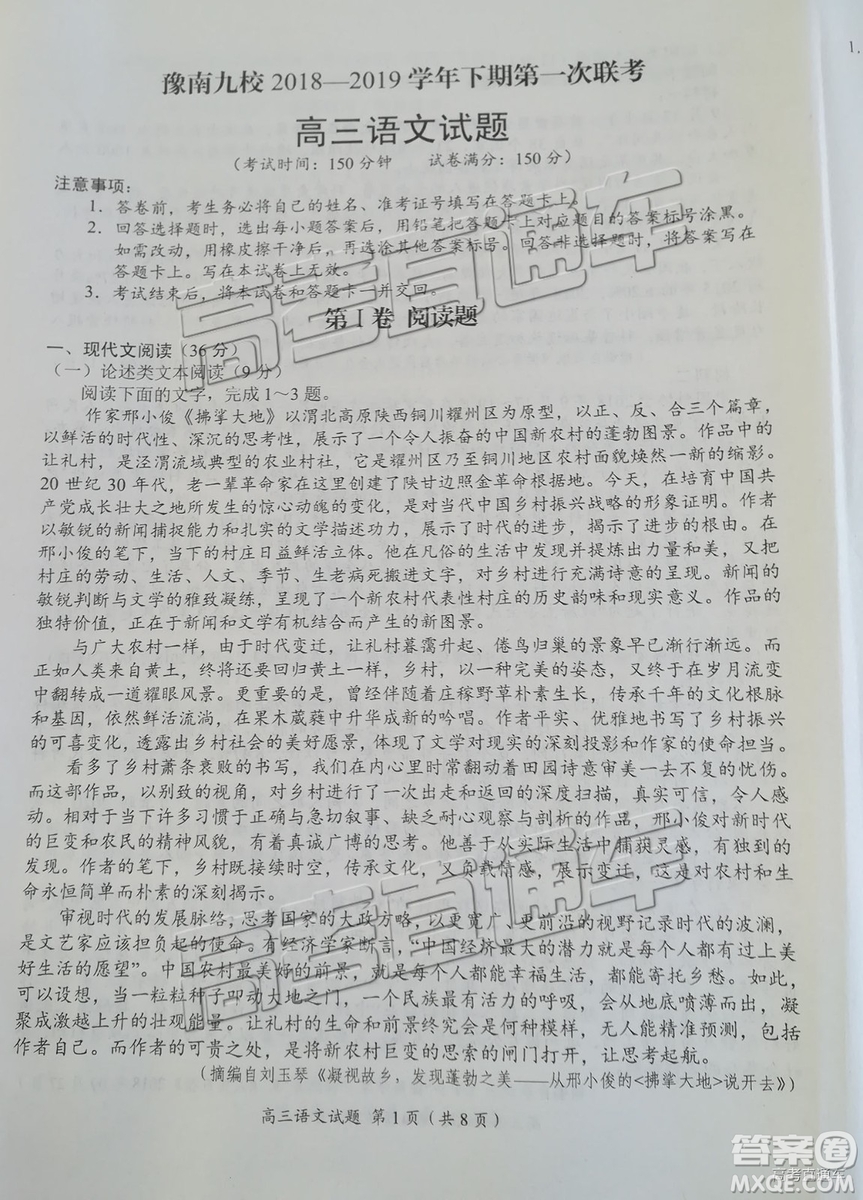 豫南九校 2018—2019 学年下期第一次联考
高三语文试题
(考试时间：150 分钟　试卷满分：150 分)
注意事项：
1. 答卷前，考生务必将自己的姓名、准考证号填写在答题卡上。
2. 回答选择题时，选出每小题答案后，用铅笔把答题卡上对应题目的答案标号涂黑。
如需改动，用橡皮擦干净后，再选涂其他答案标号。回答非选择题时，将答案写在
答题卡上。写在本试卷上无效。
3. 考试结束后，将本试卷和答题卡一并交回。
第Ⅰ卷 阅读题
一、现代文阅读(36 分)
(一)论述类文本阅读(9 分)
阅读下面的文字，完成1～3 题。
作家邢小俊《拂掌大地》以渭北高原陕西铜川耀州区为原型，以正、反、合三个篇章，
以鲜活的时代性、深沉的思考性，展示了一个令人振奋的中国新农村的蓬勃图景。作品中的
让礼村，是泾渭流域典型的农业村社，它是耀州区乃至铜川地区农村面貌焕然一新的缩影。
20 世纪 30 年代，老一辈革命家在这里创建了陕甘边照金革命根据地。今天，在培育中国共
产党成长壮大之地所发生的惊心动魄的变化，是对当代中国乡村振兴战略的形象证明。作者
以敏锐的新闻捕捉能力和扎实的文学描述功力，展示了时代的进步，揭示了进步的根由。在
邢小俊的笔下，当下的村庄日益鲜活立体。他在凡俗的生活中发现并提炼出力量和美，又把
村庄的劳动、生活、人文、季节、生老病死搬进文字，对乡村进行充满诗意的呈现。新闻的
敏锐判断与文学的雅致凝练，呈现了一个新农村代表性村庄的历史韵味和现实意义。作品的
独特价值，正在于新闻和文学有机结合而产生的新图景。
与广大农村一样，由于时代变迁，让礼村暮霭升起、倦鸟归巢的景象早已渐行渐远。而
正如人类来自黄土，终将还要回到黄土一样，乡村，以一种完美的姿态，又终将在岁月流变
中翻转成一道耀眼风景。更重要的是，曾经伴随着庄稼野草朴素生长，传承千年的文化根脉
和基因，依然鲜活流淌，在果木葳蕤中升华成新的吟唱。作者平实、优雅地书写了乡村振兴
的可喜变化，透露出乡村社会的美好愿景，体现了文学对现实的深刻投影和作家的使命担当。
看多了乡村萧条衰败的书写，我们在内心里时常翻动着田园诗意审美一去不复的忧伤。
而这部作品，以别致的视角，对乡村进行了一次出走和返回的深度扫描，真实可信，令人感
动。相对于当下许多习惯于正确与急切叙事、缺乏耐心观察与剖析的作品，邢小俊对新时代
的巨变和农民的精神风貌，有着真诚广博的思考。他善于从实际生活中捕获灵感，有独到的
发现。作者的笔下，乡村既接续时空，传承文化，又负载情感，展示变迁，这是对农村和生
命永恒简单而朴素的深刻揭示。
审视时代的发展脉络，思考国家的大政方略，以更宽广、更前沿的视野记录时代的波澜，
是文艺家应该担负起的使命。有经济学家断言，“中国经济最大的潜力就是每个人都有过上美
好生活的愿望”。中国农村最美好的前景，就是每个人都能幸福生活，都能寄托乡愁。我们
可以设想，当一粒粒种子叩动大地之门，一个民族最有活力的呼吸，会从地底喷薄而出，凝
聚成激越上升的壮观能量。让礼村的生命和前景终究会是何种模样，无人能精准预测，包括
作者自己。而作者的可贵之处，是将新农村巨变的思索的闸门打开，让思考起航。
(摘编自刘玉琴《凝视故乡，发现蓬勃之美——从邢小俊的<拂掌大地>说开去》)
高三语文试题 第 1 页 (共 8 页)
1.
高考直通车
高考直通车
答案圈
高考直通车
MXQE.COM